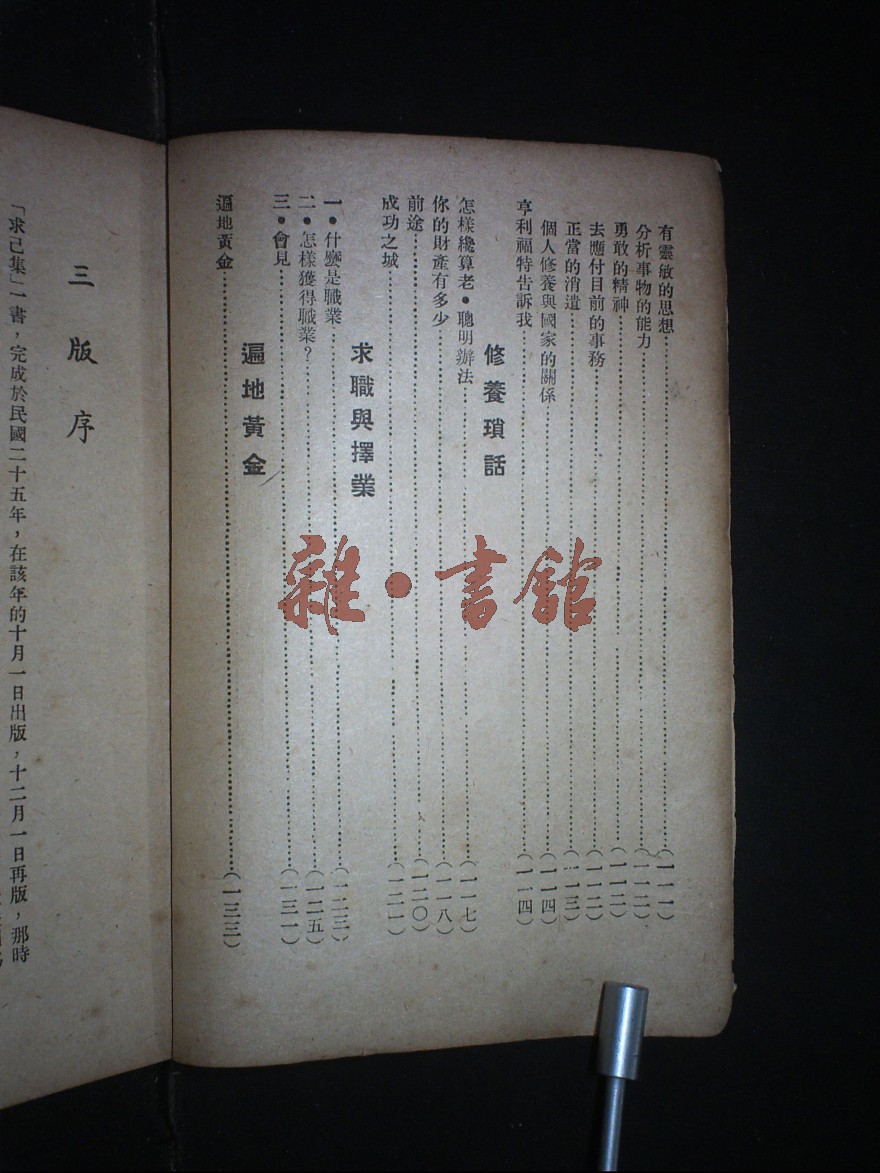 有靈敏的思想……(一一一)
分析事物的能力……(一一二)
勇敢的精神……(一一二)
去應付目前的事務……(一一二)
正當的消遣……(一一三)
個人修養與國家的關係……(一一四)
亨利福特告訴我……(一一四)
修養瑣話
怎樣纔算老•聰明辦法……(一一七)
你的財產有多少……(一一八)
前途……(一二〇)
成功之城……(一二一)
求職與擇業
一•什麼是職業……(一二三)
二•怎樣獲得職業?……(一二五)
三•會見……(一三一)
遍地黃金
遍地黃金……(一三三)
三版序
「求己集」一書,完成於民國二十五年,在該年的十月一日出版,十二月一日再版,那時
雜•書館